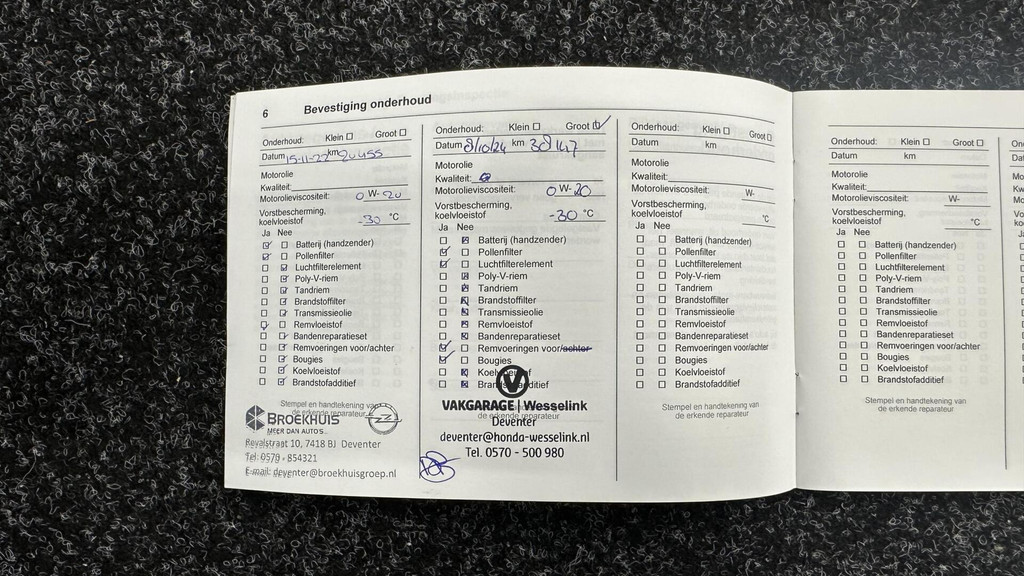 6 Bevestiging onderhoud
Onderhoud: Klein Groot
Datum 15-11-22 km 20455
Motorolie
Kwaliteit:
Motorolieviscositeit: 0 W- 20
Vorstbescherming,
koelvloeistof -30 °C
Ja Nee
Batterij (handzender)
Pollenfilter
Luchtfilterelement
Poly-V-riem
Tandriem
Brandstoffilter
Transmissieolie
Remvloeistof
Bandenreparatieset
Remvoeringen voor/achter
Bougies
Koelvloeistof
Brandstofadditief
Stempel en handtekening van
de erkende reparateur
BROEKHUIS
MEER DAN AUTO'S
Revalstraat 10, 7418 BJ Deventer
Tel: 0570 - 854321
E-mail: deventer@broekhuisgroep.nl
Onderhoud: Klein Groot
Datum 8/10/24 km 38147
Motorolie
Kwaliteit:
Motorolieviscositeit: 0 W- 20
Vorstbescherming,
koelvloeistof -30 °C
Ja Nee
Batterij (handzender)
Pollenfilter
Luchtfilterelement
Poly-V-riem
Tandriem
Brandstoffilter
Transmissieolie
Remvloeistof
Bandenreparatieset
Remvoeringen voor/achter
Bougies
Koelvloeistof
Brandstofadditief
VAKGARAGE | Wesselink
de erkende reparateur
Deventer
deventer@honda-wesselink.nl
Tel. 0570 - 500 980
Onderhoud: Klein Groot
Datum km
Motorolie
Kwaliteit:
Motorolieviscositeit: W-
Vorstbescherming,
koelvloeistof °C
Ja Nee
Batterij (handzender)
Pollenfilter
Luchtfilterelement
Poly-V-riem
Tandriem
Brandstoffilter
Transmissieolie
Remvloeistof
Bandenreparatieset
Remvoeringen voor/achter
Bougies
Koelvloeistof
Brandstofadditief
Stempel en handtekening van
de erkende reparateur
Onderhoud: Klein Groot
Datum km
Motorolie
Kwaliteit:
Motorolieviscositeit: W-
Vorstbescherming,
koelvloeistof °C
Ja Nee
Batterij (handzender)
Pollenfilter
Luchtfilterelement
Poly-V-riem
Tandriem
Brandstoffilter
Transmissieolie
Remvloeistof
Bandenreparatieset
Remvoeringen voor/achter
Bougies
Koelvloeistof
Brandstofadditief
Stempel en handtekening van
de erkende reparateur